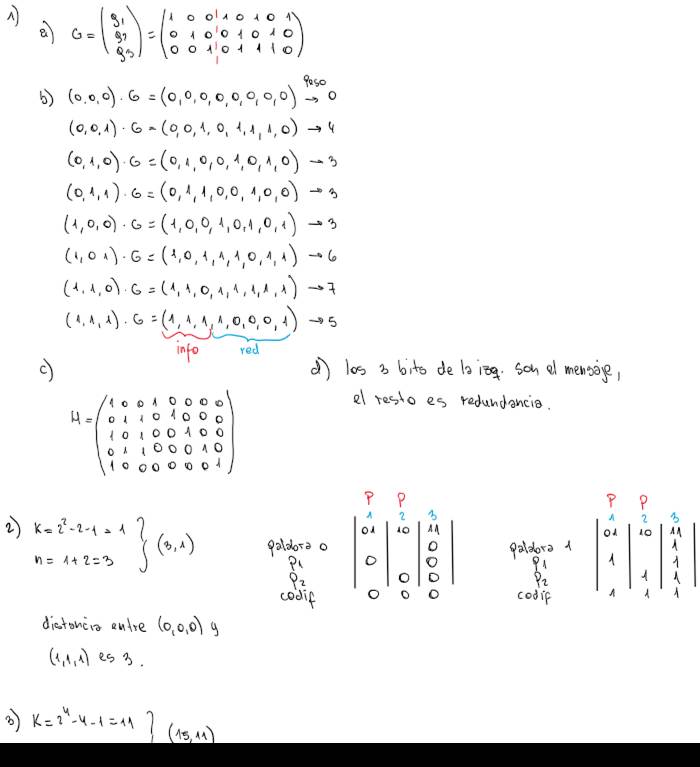 1)
a) G = (g1 g2 g3) = (1 0 0 1 0 1 0 1
0 1 0 0 1 0 1 0
0 0 1 0 1 1 1 0)
peso
b) (0,0,0) · G = (0,0,0,0,0,0,0,0) → 0
(0,0,1) · G = (0,0,1,0,1,1,1,0) → 4
(0,1,0) · G = (0,1,0,0,1,0,1,0) → 3
(0,1,1) · G = (0,1,1,0,0,1,0,0) → 3
(1,0,0) · G = (1,0,0,1,0,1,0,1) → 3
(1,0 1) · G = (1,0,1,1,1,0,1,1) → 6
(1,1,0) · G = (1,1,0,1,1,1,1,1) → 7
(1,1,1) · G = (1,1,1,1,0,0,0,1) → 5
info red
c)
H = (1 0 0 1 0 0 0 0
0 1 1 0 1 0 0 0
1 0 1 0 0 1 0 0
0 1 1 0 0 0 1 0
1 0 0 0 0 0 0 1)
d) los 3 bits de la izq. son el mensaje,
el resto es redundancia.
2) K = 2² - 2 - 1 = 1
n = 1 + 2 = 3 } (3,1)
P P
1 2 3
01 10 11
palabra 0 0
P1 0 0
P2 0 0
codif 0 0 0
P P
1 2 3
01 10 11
palabra 1 1
P1 1 1
P2 1 1
codif 1 1 1
distancia entre (0,0,0) y
(1,1,1) es 3.
3) K = 2⁴ - 4 - 1 = 11 } (15,11)